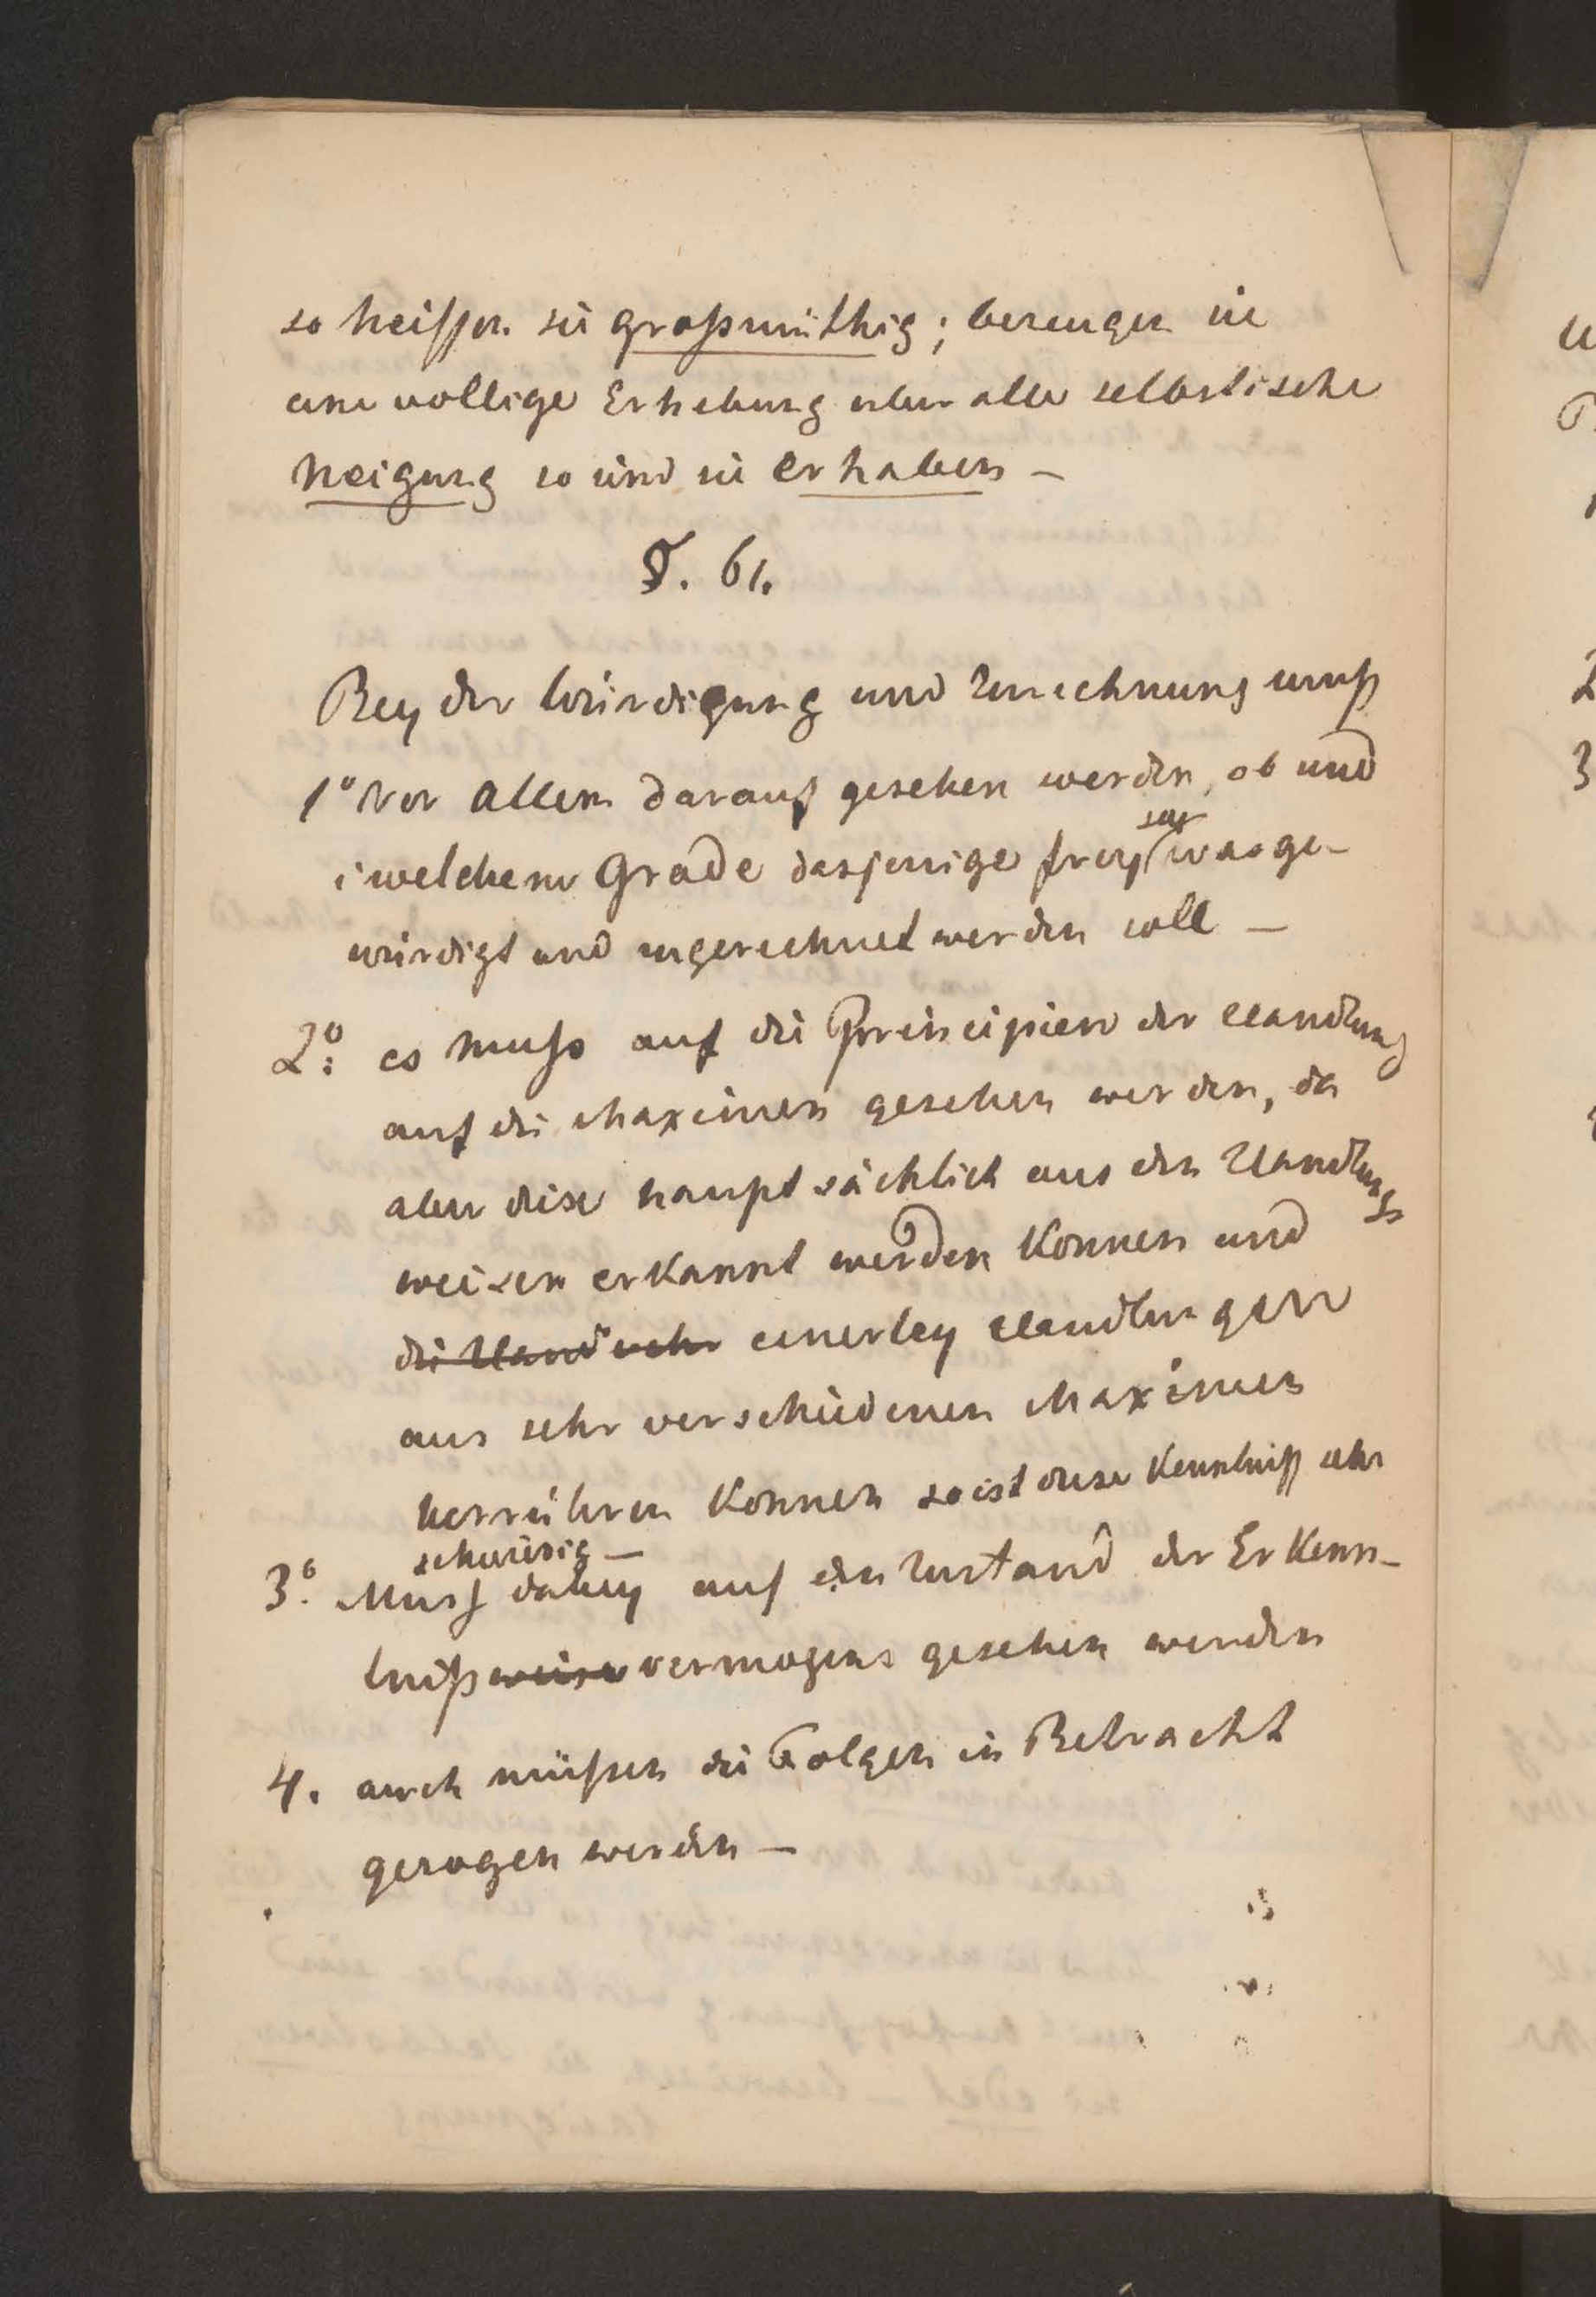 so heissen sie großmüthig; bezeugen sie
eine vollige Erhebung uber alle selbstische
Neigung so sind sie erhaben —
§. 61.
Bey der Würdigung und Zurechnung muß
1° Vor Allem darauf gesehen werden, ob und
i welchem Grade dasjenige frey sey was ge-
würdigt und zugerechnet werden soll —
2° es muss auf die Principien der Handlung
auf die Maximen gesehen werden, da
aber diese hauptsächlich aus den Handlungs
weisen erkannt werden konnen und
die Hand sehr einerley Handlungen
aus sehr verschiedenen Maximen
herrühren konnen so ist diese Kenntniß sehr
schwierig —
3° Muss dabey auf den Zustand der Erkenn-
tnißweise vermogens gesehen werden
4. auch müssen die Folgen in Betracht
gezogen werden —